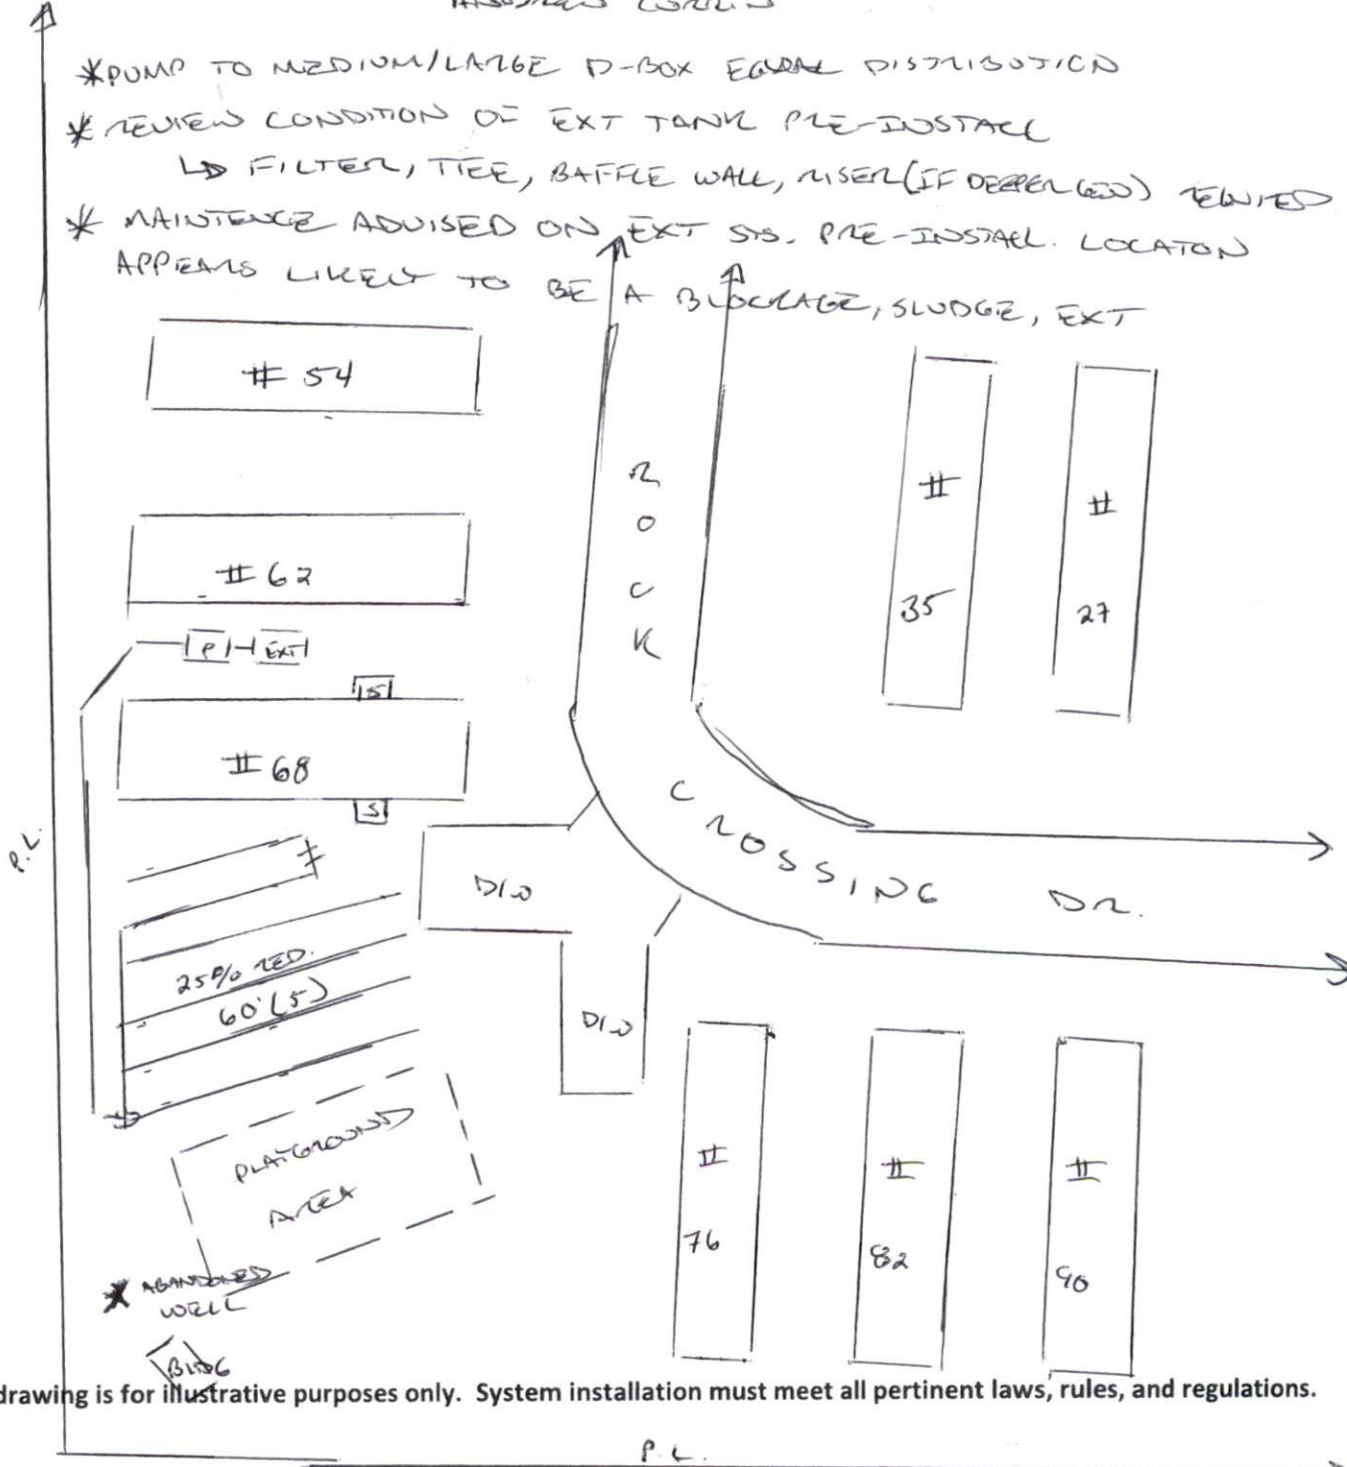 *PUMP TO MEDIUM/LARGE D-BOX EQUAL DISTRIBUTION
* REVIEW CONDITION OF EXT TANK PRE-INSTALL
↳ FILTER, TEE, BAFFLE WALL, RISER (IF DEEPER
* MAINTENCE ADVISED ON EXT SYS. PRE-INSTALL. LOCATON
APPEARS LIKELY TO BE A BLOCKAGE, SLUDGE, EXT
# 54
# 62
P EXT
S
# 68
S
ROCK
CROSSING DR.
# 35
# 27
P.L.
D/W
D/W
25% RED.
60' (5)
PLAYGROUND
AREA
* ABANDONED
WELL
BLDG
# 76
# 82
# 90
drawing is for illustrative purposes only. System installation must meet all pertinent laws, rules, and regulations.
P.L.